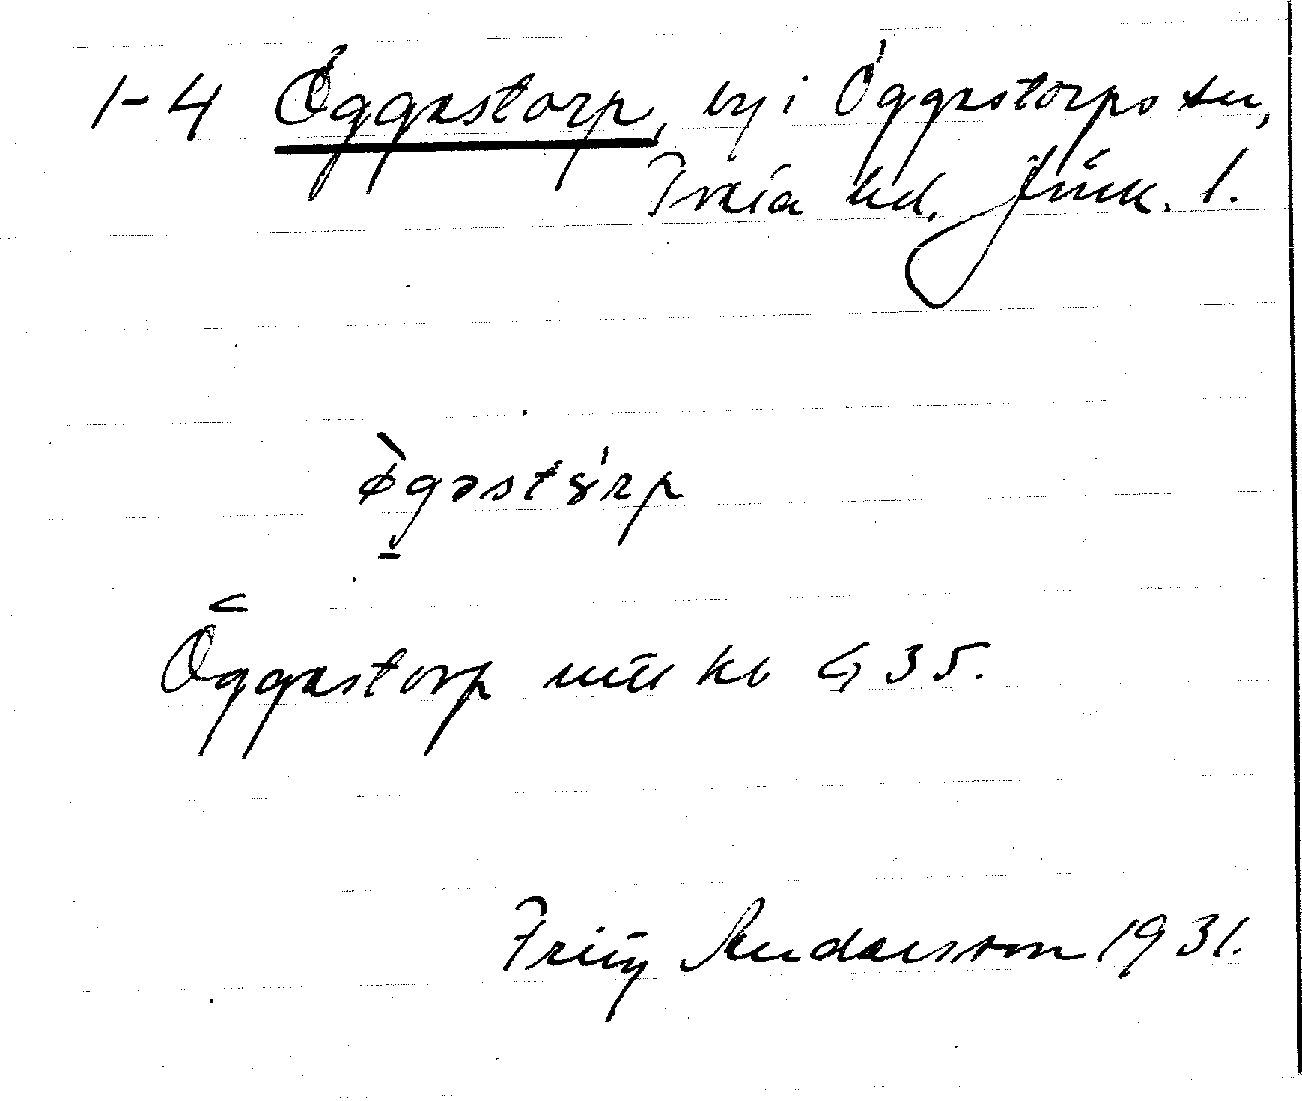 1-4 Öggestorp, by i Öggestorps sn,
Tveta hd. Jönk. l.
Öggestorp mtl kb G 35.
Fritz Andersson 1931.